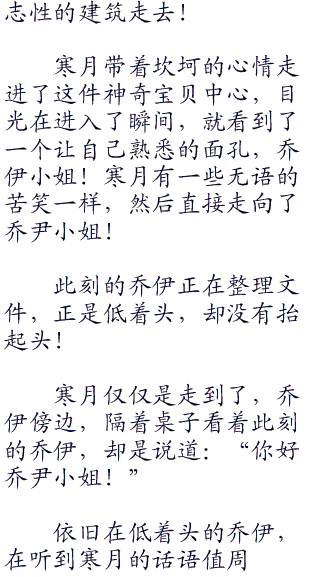 志性的建筑走去！
寒月带着坎坷的心情走
进了这件神奇宝贝中心，目
光在进入了瞬间，就看到了
一个让自己熟悉的面孔，乔
伊小姐！寒月有一些无语的
苦笑一样，然后直接走向了
乔尹小姐！
此刻的乔伊正在整理文
件，正是低着头，却没有抬
起头！
寒月仅仅是走到了，乔
伊傍边，隔着桌子看着此刻
的乔伊，却是说道：“你好
乔尹小姐！”
依旧在低着头的乔伊，
在听到寒月的话语值周